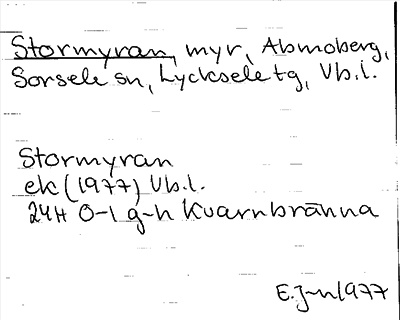 Stormyran, myr, Abmoberg,
Sorsele sn, Lycksele tg, Vb.l.
Stormyran
ek (1977) Vb.l.
24H 0-1 g-h Kvarnbränna
E.J-n 1977